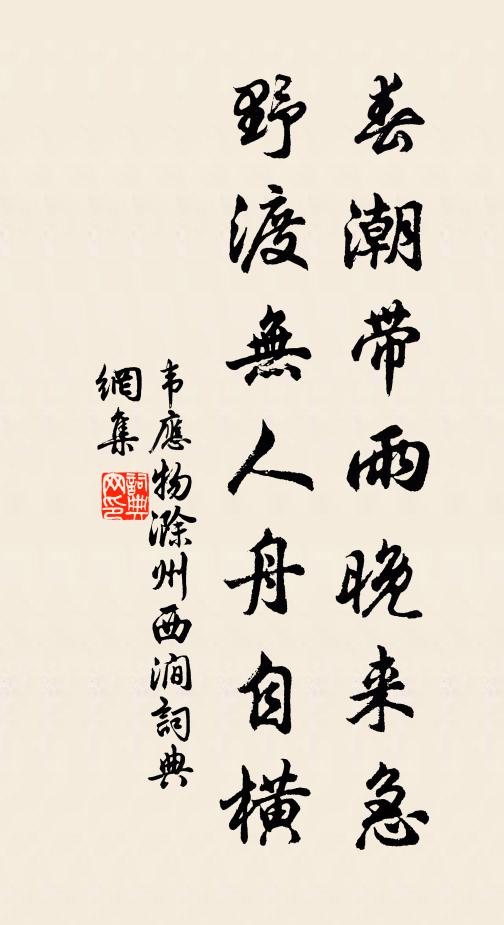 春潮带雨晚来急
野渡無人舟自横
韦應物滁州西澗詞典
網集
詞典网印